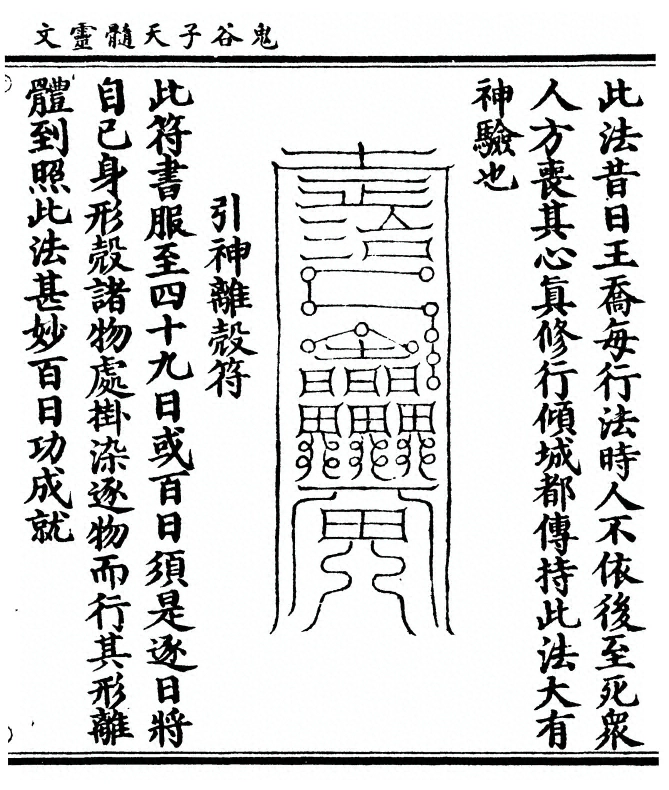 鬼谷子天髓靈文
此法昔日王喬每行法時人不依後至死衆
人方喪其心眞修行傾城都傳持此法大有
神驗也
引神離殼符
此符書服至四十九日或百日須是逐日將
自己身形殼諸物處掛染逐物而行其形離
體到照此法甚妙百日功成就